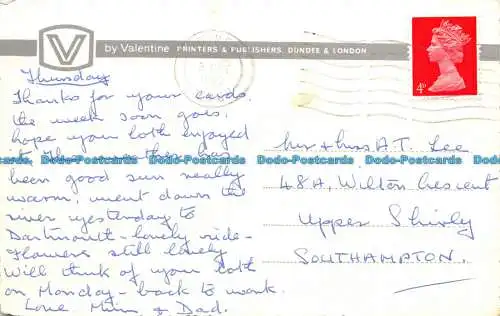 V by Valentine PRINTERS & PUBLISHERS, DUNDEE & LONDON
4D
Thursday
Thanks for your cards,
the week soon goes,
hope you both enjoyed
it. The this has
been good sun really
warm, went down the
river yesterday to
Dartmouth - lovely ride -
flowers still lovely
Will think of you both
on Monday - back to work.
Love Mum & Dad.
Mr & Mrs A.T. Lee
48A, Wilton Crescent
Upper Shirley
SOUTHAMPTON.
Dodo-Postcards Dodo-Postcards Dodo-Postcards Dodo-Postcards Dodo-Postcards